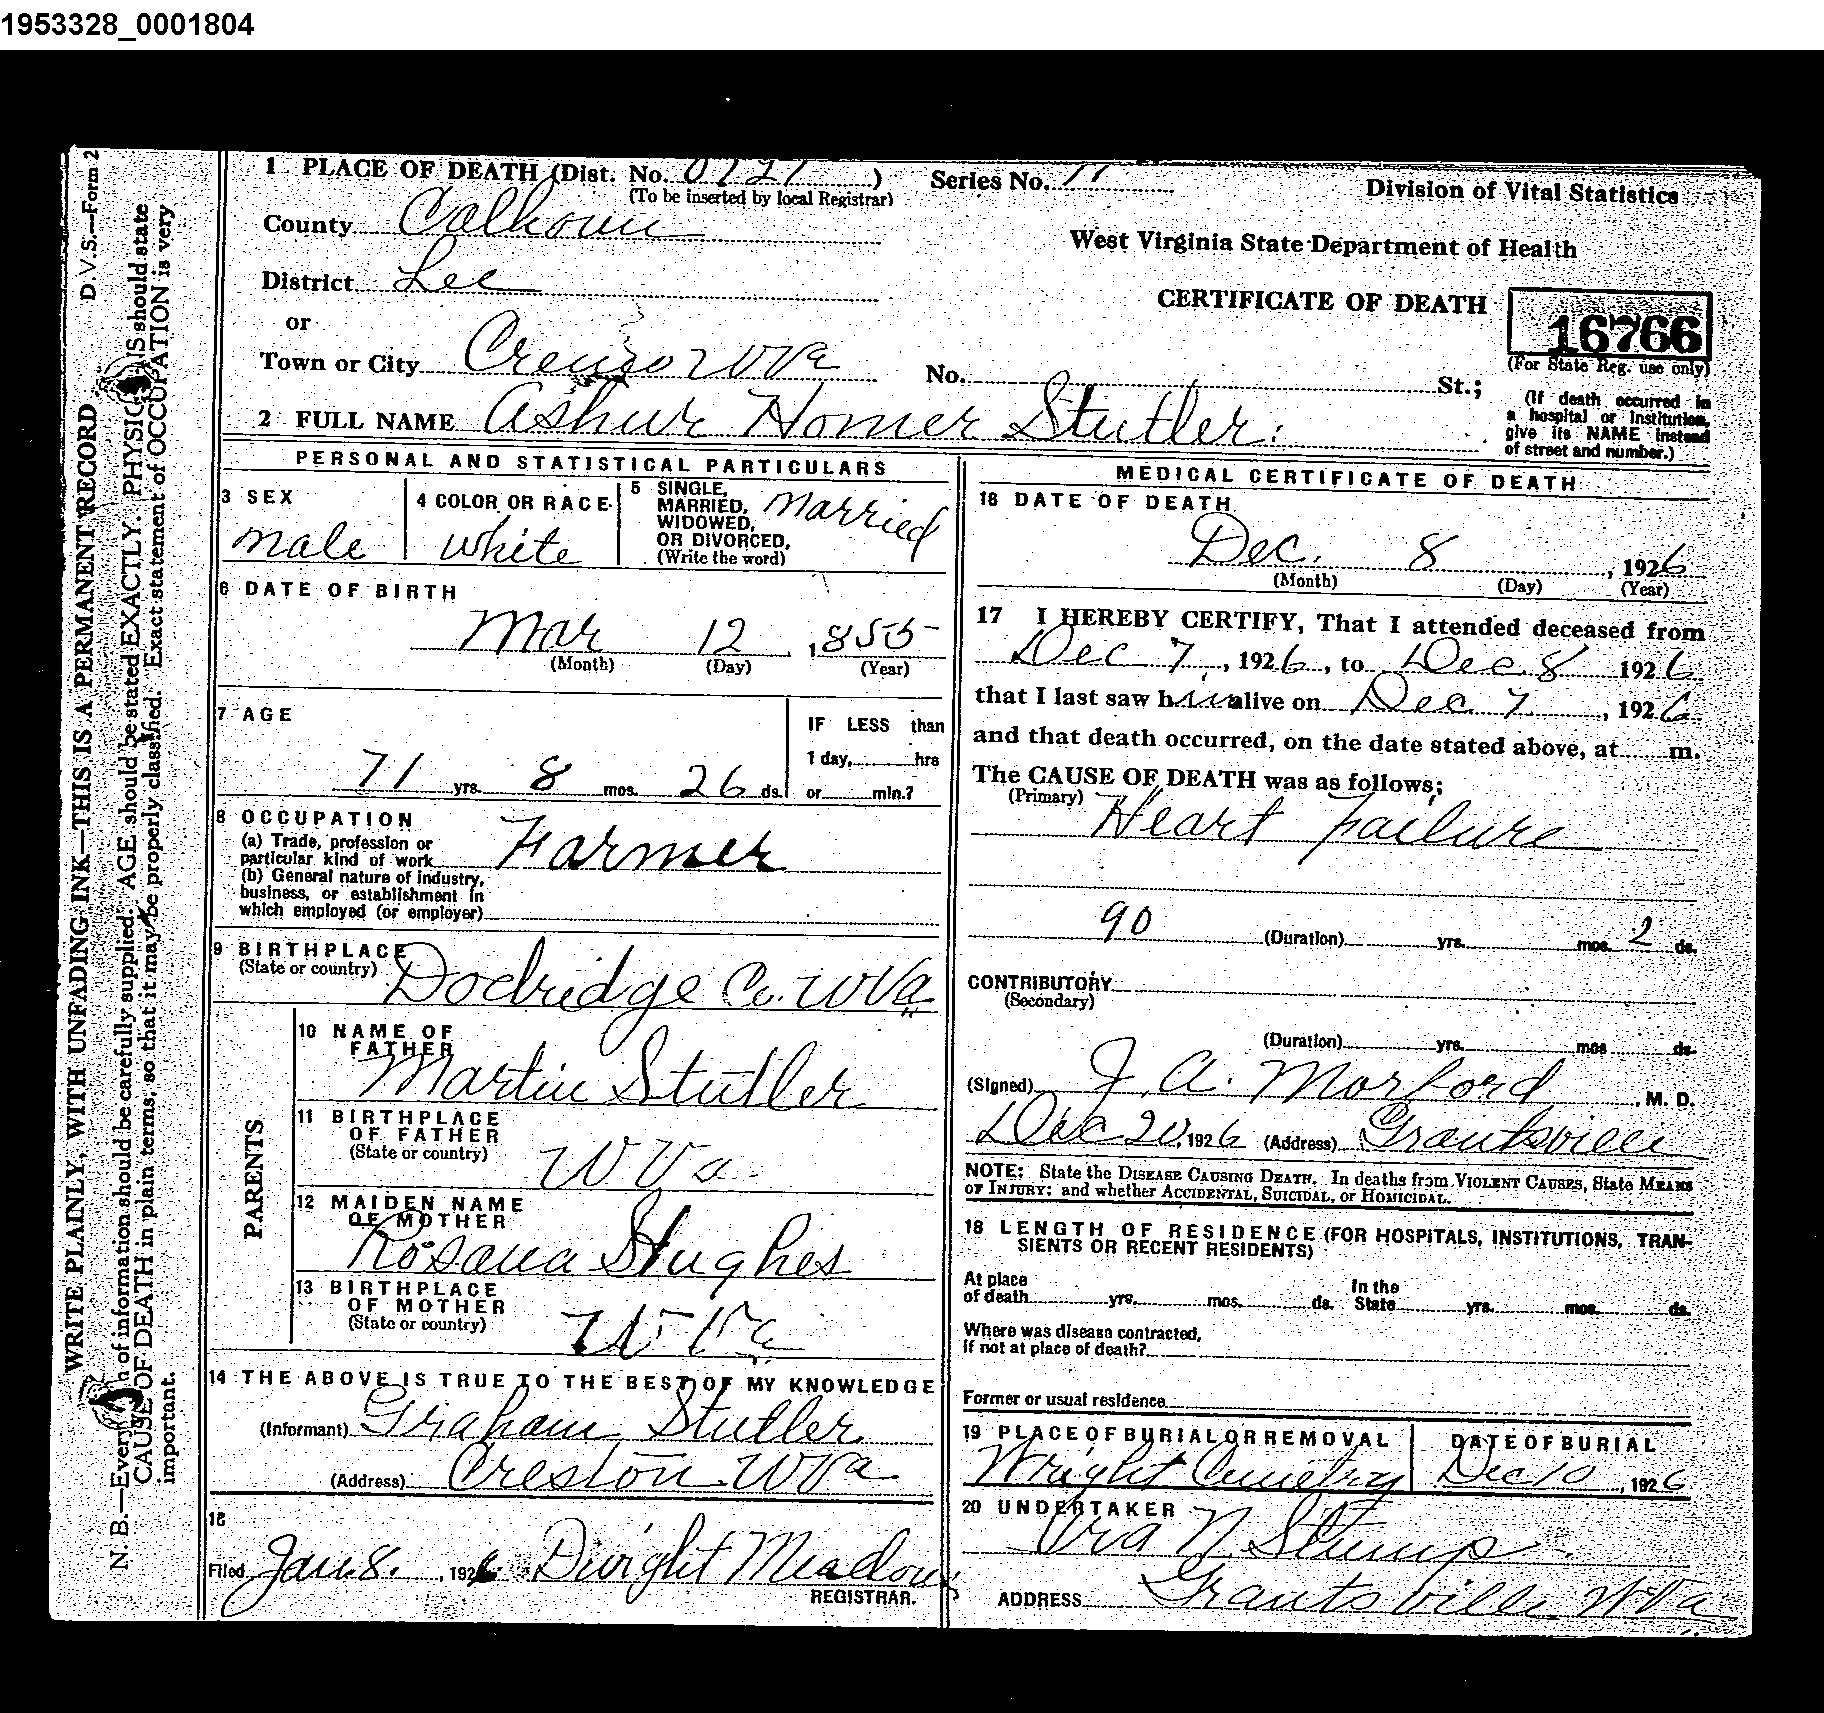 1953328_0001804
D.V.S.—Form 2
WRITE PLAINLY, WITH UNFADING INK—THIS IS A PERMANENT RECORD
N. B.—Every of information should be carefully supplied. AGE should be stated EXACTLY. PHYSIC NS should state
CAUSE OF DEATH in plain terms, so that it may be properly classified. Exact statement of OCCUPATION is very
important.
1 PLACE OF DEATH (Dist. No. 0721 ) Series No. 11
(To be inserted by local Registrar)
Division of Vital Statistics
County Calhoun
West Virginia State Department of Health
District Lee
CERTIFICATE OF DEATH
16766
(For State Reg. use only)
or
Town or City WVa No. St.;
(If death occurred in
a hospital or institution,
give its NAME instead
of street and number.)
2 FULL NAME Ashur Homer Stutler.
PERSONAL AND STATISTICAL PARTICULARS
3 SEX
male
4 COLOR OR RACE
white
5 SINGLE,
MARRIED,
WIDOWED,
OR DIVORCED,
(Write the word)
married
6 DATE OF BIRTH
Mar 12 , 1855
(Month) (Day) (Year)
7 AGE
71 yrs. 8 mos. 26 ds.
IF LESS than
1 day, hrs
or min.?
8 OCCUPATION
(a) Trade, profession or
particular kind of work Farmer
(b) General nature of industry,
business, or establishment in
which employed (or employer)
9 BIRTHPLACE
(State or country) Dodridge Co. WVa
PARENTS
10 NAME OF
FATHER
Martin Stutler
11 BIRTHPLACE
OF FATHER
(State or country) WVa
12 MAIDEN NAME
OF MOTHER
Rosana Hughes
13 BIRTHPLACE
OF MOTHER
(State or country) W Va
14 THE ABOVE IS TRUE TO THE BEST OF MY KNOWLEDGE
(Informant) Graham Stutler
(Address) Creston WVa
15
Filed Jan. 8. , 1926 Dwight Meadows
REGISTRAR.
MEDICAL CERTIFICATE OF DEATH
16 DATE OF DEATH
Dec. 8 , 1926
(Month) (Day) (Year)
17 I HEREBY CERTIFY, That I attended deceased from
Dec 7 , 1926, to Dec 8 1926
that I last saw him alive on Dec 7 , 1926
and that death occurred, on the date stated above, at m.
The CAUSE OF DEATH was as follows;
(Primary) Heart Failure
90 (Duration) yrs. mos. 2 ds.
CONTRIBUTORY
(Secondary)
(Duration) yrs. mos. ds.
(Signed) J. A. Morford , M. D.
Dec 20, 1926 (Address) Grantsville
NOTE: State the DISEASE CAUSING DEATH. In deaths from VIOLENT CAUSES, State MEANS
OF INJURY; and whether ACCIDENTAL, SUICIDAL, or HOMICIDAL.
18 LENGTH OF RESIDENCE (FOR HOSPITALS, INSTITUTIONS, TRAN-
SIENTS OR RECENT RESIDENTS)
At place
of death yrs. mos. ds.
In the
State yrs. mos. ds.
Where was disease contracted,
if not at place of death?
Former or usual residence
19 PLACE OF BURIAL OR REMOVAL
Wright Cemetery
DATE OF BURIAL
Dec 10 , 1926
20 UNDERTAKER
Ora N. Stump
ADDRESS Grantsville WVa